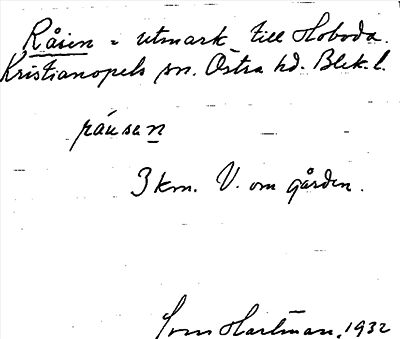 Råsen = utmark till Hoboda.
Kristianopels sn. Östra hd. Blek. l.
ráusen
3 km. V. om gården.
Hartman, 1932